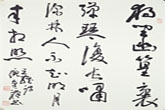 獨坐幽篁裏
彈琴復長嘯
深林人不知明月
來相照